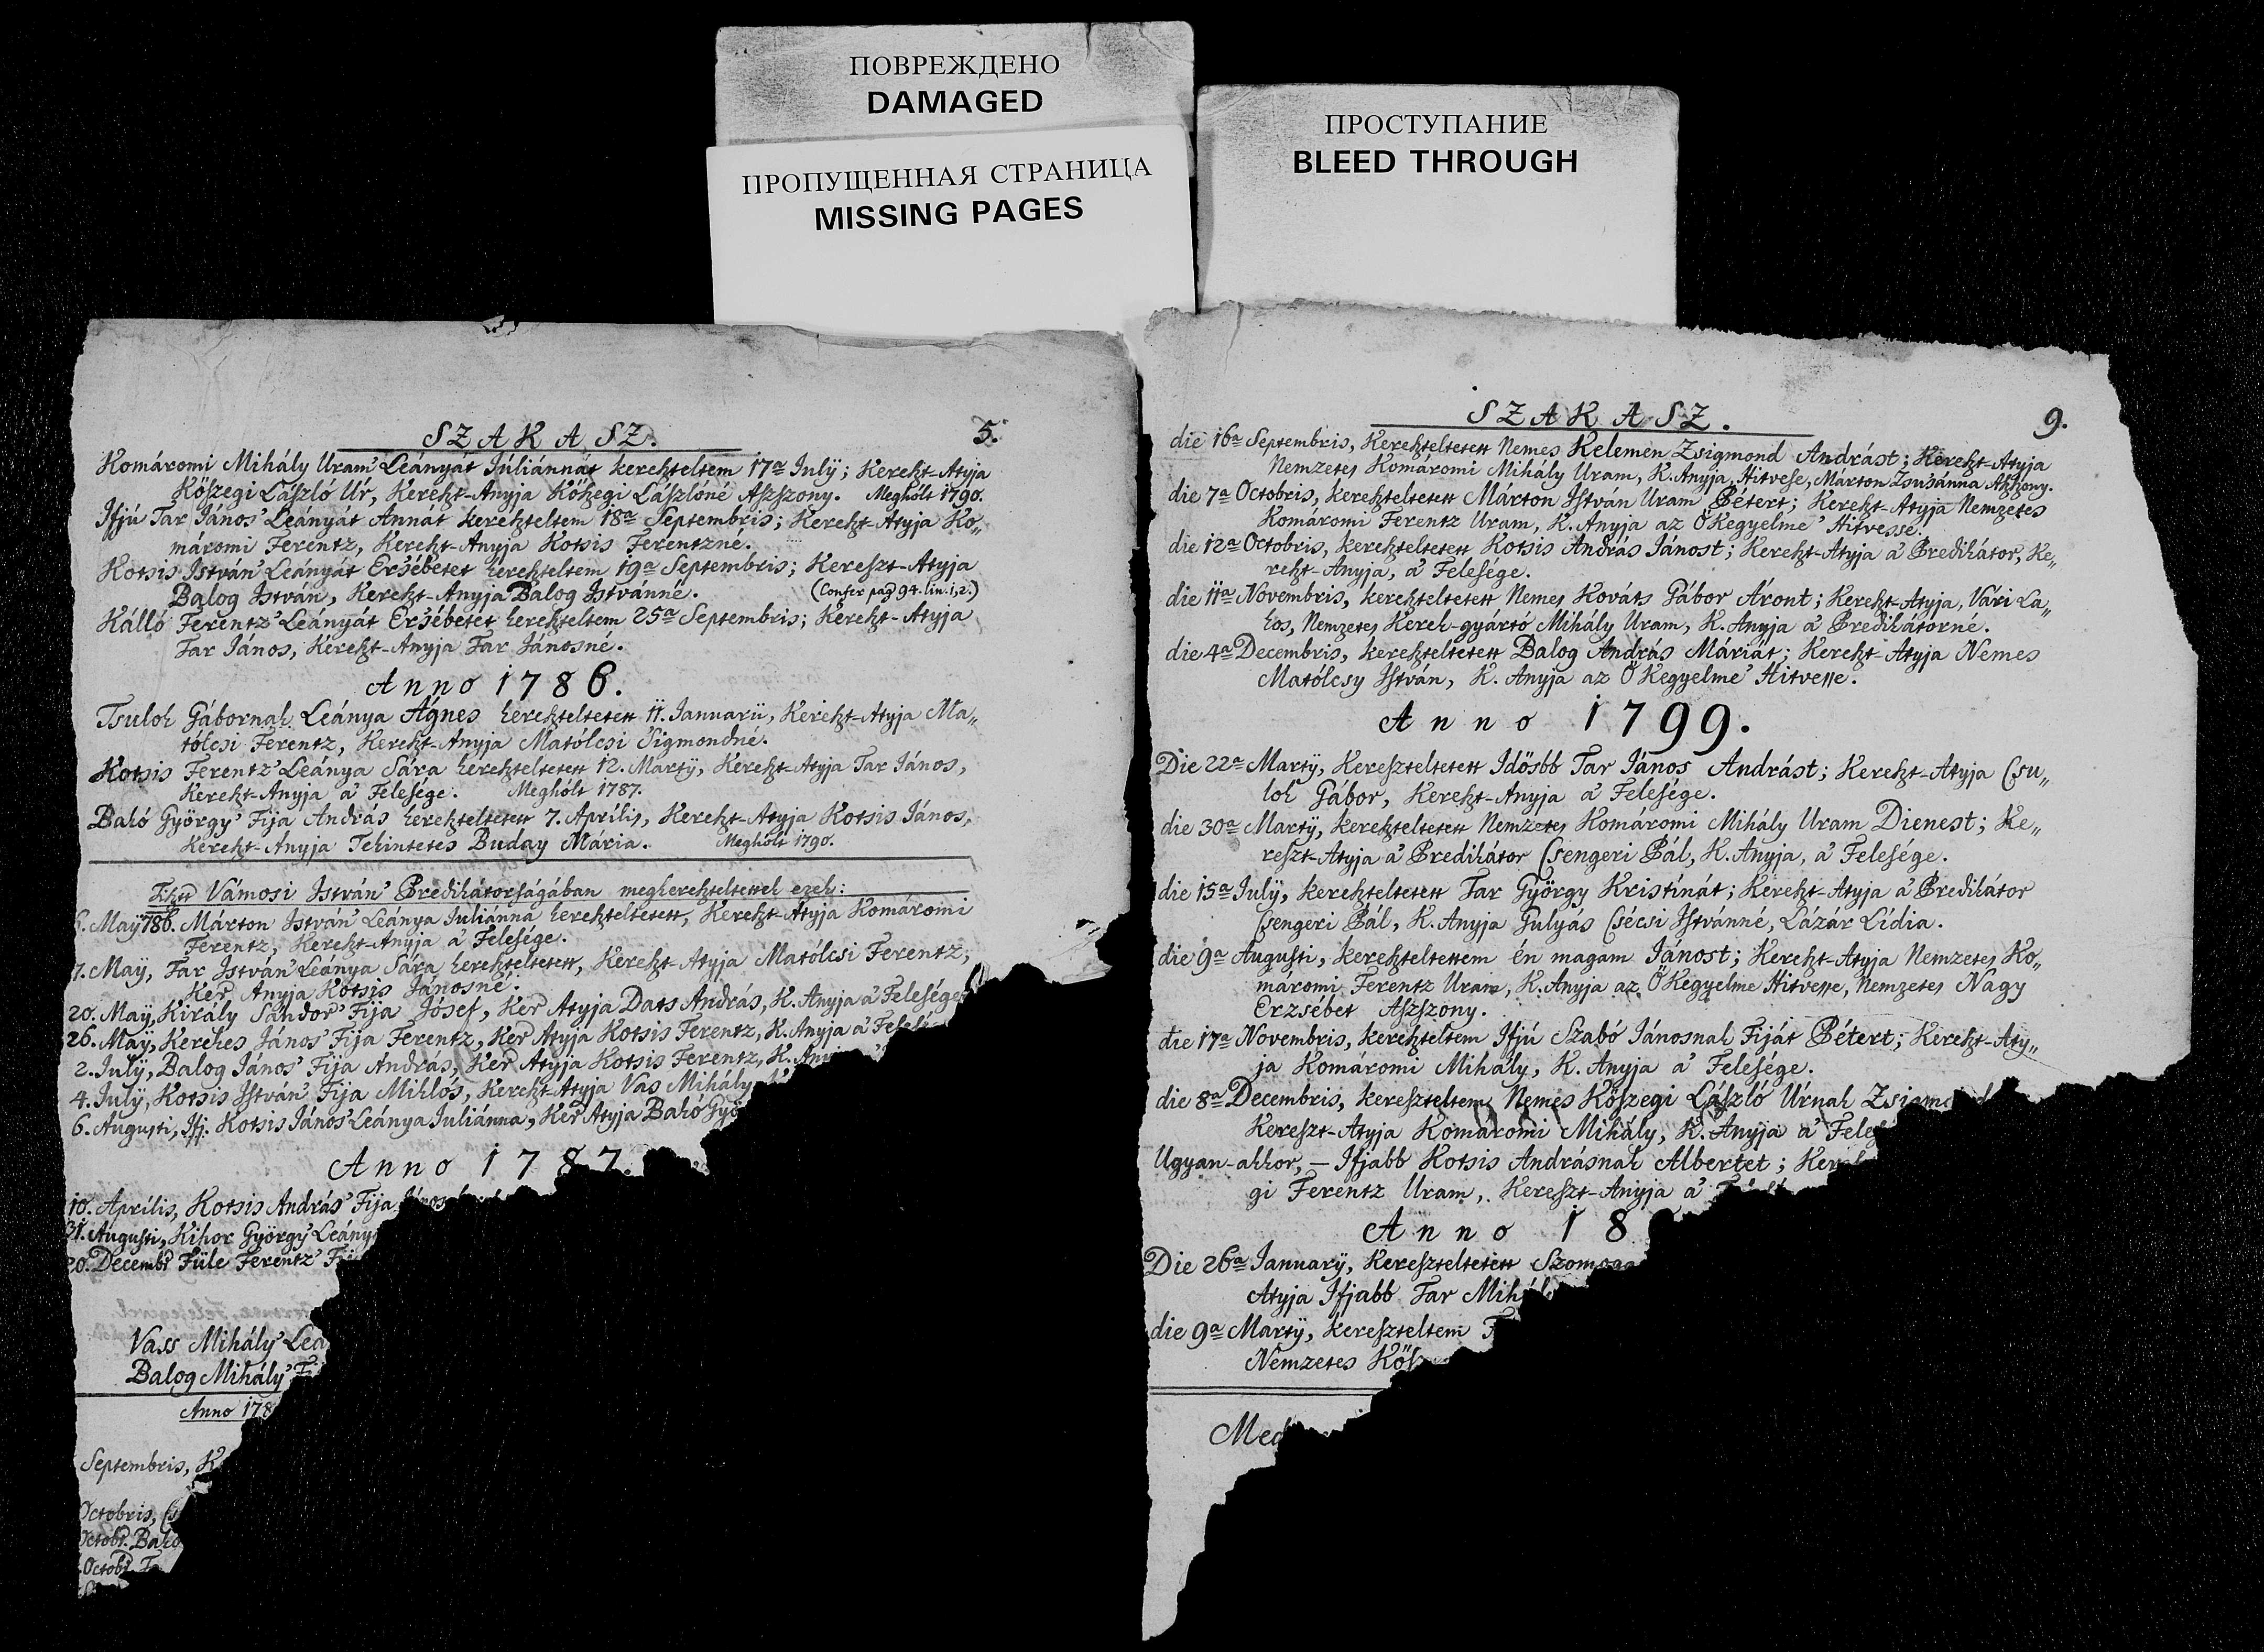 ПОВРЕЖДЕНО
DAMAGED
ПРОПУЩЕННАЯ СТРАНИЦА
MISSING PAGES
ПРОСТУПАНИЕ
BLEED THROUGH
SZAKASZ. 5.
Komáromi Mihály Uram' Leányát Júliánnát kereszteltem 17a July; Kereszt-Atyja
Kőszegi László Úr, Kereszt-Anyja Kőszegi Lászlóné Aszszony. Meghólt 1790.
Ifjú Tar János' Leányát Annát kereszteltem 18a Septembris; Kereszt-Atyja Ko„
máromi Ferentz, Kereszt-Anyja Kotsis Ferentzné.
Kotsis István' Leányát Ersébetet kereszteltem 19a Septembris; Kereszt-Atyja
Balog István, Kereszt-Anyja Balog Istvánné. (Confer pag 94. lin. 1,2.)
Kálló Ferentz' Leányát Ersébetet kereszteltem 25a Septembris; Kereszt-Atyja
Tar János, Kereszt-Anyja Tar Jánosné.
Anno 1786.
Tsulok Gábornak Leánya Ágnes kereszteltetett 11. Januarii, Kereszt-Atyja Ma„
tólcsi Ferentz, Kereszt-Anyja Matólcsi Sigmondné.
Kotsis Ferentz' Leánya Sára kereszteltetett 12. Martÿ, Kereszt-Atyja Tar János,
Kereszt-Anyja a' Felesége. Meghólt 1787.
Bakó György' Fija András kereszteltetett 7. Aprílis, Kereszt-Atyja Kotsis János,
Kereszt-Anyja Tekintetes Buday Mária. Meghólt 1790.
Vámosi István' Prédikátorságában megkereszteltettek ezek:
Maÿ 786. Márton István' Leánya Juliánna kereszteltetett, Kereszt-Atyja Komáromi
Ferentz, Kereszt-Anyja a' Felesége.
7. Maÿ, Tar István' Leánya Sára kereszteltetett, Kereszt-Atyja Matólcsi Ferentz;
Ker Anyja Kotsis Jánosné.
20. Maÿ, Király Sándor' Fija Jósef, Ker Atyja Dats András, K. Anyja a' Felesége
26. Maÿ, Kerekes János' Fija Ferentz, Ker Atyja Kotsis Ferentz, K. Anyja a'
2. Julÿ, Balog János' Fija András, Ker Atyja Kotsis Ferentz, K.
4. Julÿ, Kotsis István' Fija Miklós, Kereszt-Atyja Vas Mihály
6. Augusti, Ifj. Kotsis János' Leánya Juliánna, Ker Atyja Bakó
Anno 1787.
10. Aprílis, Kotsis András' Fija
31. Augusti, Kihor György'
20. Decembr Füle Ferentz'
Vass Mihály'
Balog Mihály'
Anno 178
Septembris, K
Octobris,
Octobr. Bakó
Octobr.
SZAKASZ. 9.
die 16a Septembris, Kereszteltetett Nemes Kelemen Zsigmond Andrást; Kereszt-Atyja
Nemzetes Komáromi Mihály Uram, K. Anyja, Hitvese, Márton Zsuzsánna Aszszony.
die 7a Octobris, kereszteltetett Márton István Uram Pétert; Kereszt-Atyja Nemzetes
Komáromi Ferentz Uram, K. Anyja az Ő Kegyelme' Hitvesse.
die 12a Octobris, kereszteltetett Kotsis András Jánost; Kereszt-Atyja a' Predikátor, Ke„
reszt-Anyja, a' Felesége.
die 11a Novembris, kereszteltetett Nemes Kováts Gábor Áront; Kereszt-Atyja, Vári La„
kos, Nemzetes Kerék-gyártó Mihály Uram, K. Anyja a' Predikátorné.
die 4a Decembris, kereszteltetett Balog András Máriát; Kereszt-Atyja Nemes
Matólcsy István, K. Anyja az Ő Kegyelme' Hitvesse.
Anno 1799.
Die 22a Martÿ, Kereszteltetett Idősbb Tar János Andrást; Kereszt-Atyja Csu„
lok Gábor, Kereszt-Anyja a' Felesége.
die 30a Martÿ, kereszteltetett Nemzetes Komáromi Mihály Uram Dienest; Ke„
reszt-Atyja a' Predikátor Csengeri Pál, K. Anyja, a' Felesége.
die 15a Julÿ, kereszteltetett Tar György Kristínát; Kereszt-Atyja a' Predikátor
Csengeri Pál, K. Anyja Gulyás Csécsi Istvánné, Lázár Lídia.
die 9a Augusti, kereszteltettem én magam Jánost; Kereszt-Atyja Nemzetes Ko„
máromi Ferentz Uram, K. Anyja az Ő Kegyelme Hitvesse, Nemzetes Nagy
Erzsébet Aszszony.
die 17a Novembris, kereszteltem Ifjú Szabó Jánosnak Fiját Pétert; Kereszt-Aty„
ja Komáromi Mihály, K. Anyja a' Felesége.
die 8a Decembris, kereszteltem Nemes Kőszegi László Úrnak
Kereszt-Atyja Komáromi Mihály, K. Anyja a'
Ugyan-akkor, — Ifjabb Kotsis Andrásnak Albertet;
gi Ferentz Uram, Kereszt-Anyja a'
Anno 18
Die 26a Januarÿ, Kereszteltetett
Atyja Ifjabb Tar
die 9a Martÿ, kereszteltem
Nemzetes